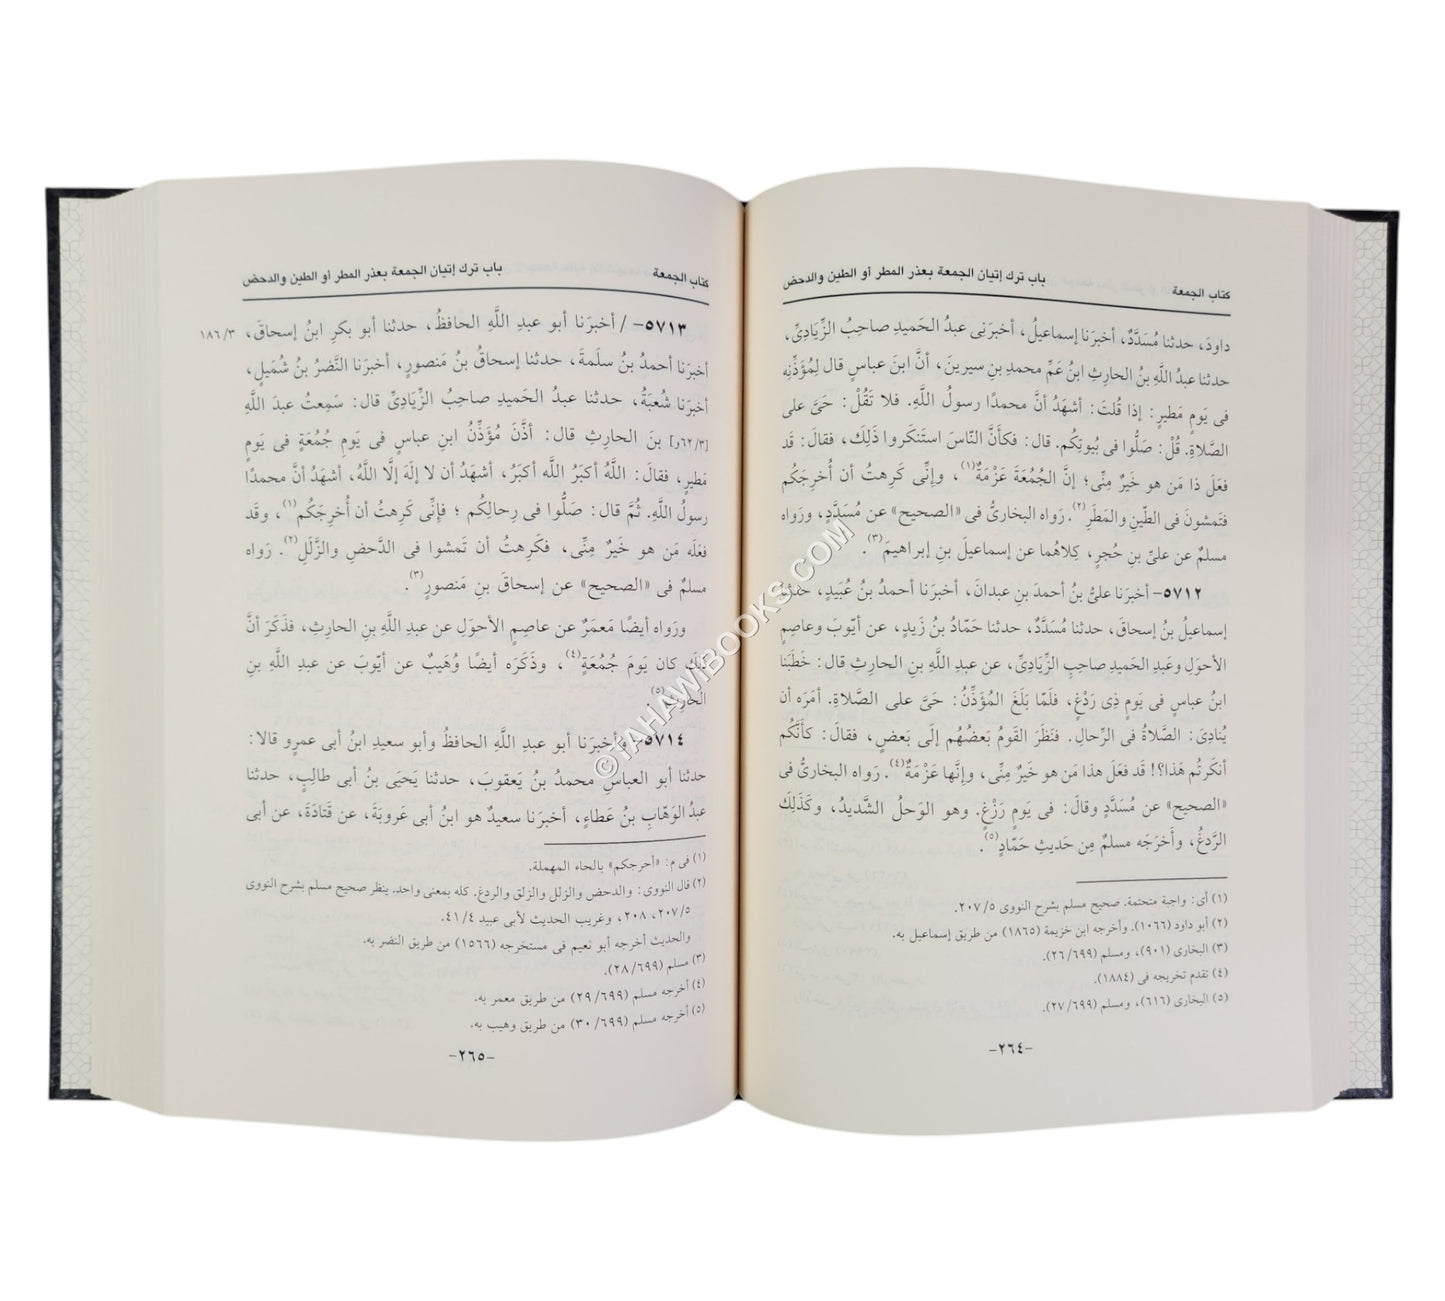 كتاب الجمعة باب ترك إتيان الجمعة بعذر المطر أو الطين والدحض
داودَ، حدثنا مُسَدَّدٌ، أخبرَنا إسماعيلُ، أخبرَنى عبدُ الحَميدِ صاحِبُ الزِّيادِىِّ،
حدثنا عبدُ اللَّهِ بنُ الحارِثِ ابنُ عَمِّ محمدِ بنِ سيرينَ، أنَّ ابنَ عباسٍ قال لِمُؤَذِّنِه
فى يَومٍ مَطيرٍ: إذا قُلتَ: أشهَدُ أنَّ محمدًا رسولُ اللَّهِ. فلا تَقُلْ: حَىَّ على
الصَّلاةِ. قُلْ: صَلُّوا فى بُيوتِكُم. قال: فكأنَّ النّاسَ استَنكَروا ذَلِكَ، فقالَ: قَد
فعَلَ ذا مَن هو خَيرٌ مِنِّى؛ إنَّ الجُمُعَةَ عَزْمَةٌ(١)، وإِنِّى كَرِهتُ أن أُخرِجَكُم
فتَمشونَ فى الطّينِ والمَطَرِ(٢). رَواه البخارىُّ فى «الصحيح» عن مُسَدَّدٍ، ورَواه
مسلمٌ عن علىِّ بنِ حُجرٍ، كِلاهُما عن إسماعيلَ بنِ إبراهيمَ(٣).
٥٧١٢- أخبرَنا علىُّ بنُ أحمدَ بنِ عبدانَ، أخبرَنا أحمدُ بنُ عُبَيدٍ، حدثنا
إسماعيلُ بنُ إسحاقَ، حدثنا مُسَدَّدٌ، حدثنا حَمّادُ بنُ زَيدٍ، عن أيّوبَ وعاصِمٍ
الأحوَلِ وعَبدِ الحَميدِ صاحِبِ الزِّيادِىِّ، عن عبدِ اللَّهِ بنِ الحارِثِ قال: خَطَبَنا
ابنُ عباسٍ فى يَومٍ ذِى رَدْغٍ، فلَمّا بَلَغَ المُؤَذِّنُ: حَىَّ على الصَّلاةِ. أمَرَه أن
يُنادِىَ: الصَّلاةُ فى الرِّحالِ. فنَظَرَ القَومُ بَعضُهُم إلَى بَعضٍ، فقالَ: كأَنَّكُم
أنكَرتُم هَذا؟! قَد فعَلَ هذا مَن هو خَيرٌ مِنِّى، وإِنَّها عَزْمَةٌ(٤). رَواه البخارىُّ فى
«الصحيح» عن مُسَدَّدٍ وقالَ: فى يَومِ رَزْغٍ. وهو الوَحلُ الشَّديدُ، وكَذَلِكَ
الرَّدغُ، وأَخرَجَه مسلمٌ مِن حَديثِ حَمّادٍ(٥).
(١) أى: واجبة متحتمة. صحيح مسلم بشرح النووى ٢٠٧/٥.
(٢) أبو داود (١٠٦٦). وأخرجه ابن خزيمة (١٨٦٥) من طريق إسماعيل به.
(٣) البخارى (٩٠١)، ومسلم (٢٦/٦٩٩).
(٤) تقدم تخريجه فى (١٨٨٤).
(٥) البخارى (٦١٦)، ومسلم (٢٧/٦٩٩).
-٢٦٤-
كتاب الجمعة باب ترك إتيان الجمعة بعذر المطر أو الطين والدحض
٥٧١٣- / أخبرَنا أبو عبدِ اللَّهِ الحافظُ، حدثنا أبو بكرِ ابنُ إسحاقَ، ١٨٦/٣
أخبرَنا أحمدُ بنُ سلَمةَ، حدثنا إسحاقُ بنُ مَنصورٍ، أخبرَنا النَّضرُ بنُ شُمَيلٍ،
أخبرَنا شُعبَةُ، حدثنا عبدُ الحَميدِ صاحِبُ الزِّيادِىِّ قال: سَمِعتُ عبدَ اللَّهِ
[٦٢/٣و] بنَ الحارِثِ قال: أذَّنَ مُؤَذِّنُ ابنِ عباسٍ فى يَومِ جُمُعَةٍ فى يَومٍ
مَطيرٍ، فقالَ: اللَّهُ أكبَرُ اللَّه أكبَرُ، أشهَدُ أن لا إلَهَ إلَّا اللَّهُ، أشهَدُ أنَّ محمدًا
رسولُ اللَّهِ. ثُمَّ قال: صَلُّوا فى رِحالِكُم ؛ فإِنِّى كَرِهتُ أن أُخرِجَكُم(١)، وقَد
فعَلَه مَن هو خَيرٌ مِنِّى، فكَرِهتُ أن تَمشوا فى الدَّحضِ والزَّلَلِ(٢). رَواه
مسلمٌ فى «الصحيح» عن إسحاقَ بنِ مَنصورٍ(٣).
ورَواه أيضًا مَعمَرٌ عن عاصِمٍ الأحوَلِ عن عبدِ اللَّهِ بنِ الحارِثِ، فذَكَرَ أنَّ
ذَلِكَ كان يَومَ جُمُعَةٍ(٤)، وذَكَرَه أيضًا وُهَيبٌ عن أيّوبَ عن عبدِ اللَّهِ بنِ
الحارِثِ(٥).
٥٧١٤- وأخبرَنا أبو عبدِ اللَّهِ الحافظُ وأبو سعيدِ ابنُ أبى عمرٍو قالا:
حدثنا أبو العباسِ محمدُ بنُ يَعقوبَ، حدثنا يَحيَى بنُ أبى طالِبٍ، حدثنا
عبدُ الوَهّابِ بنُ عَطاءٍ، أخبرَنا سعيدٌ هو ابنُ أبى عَروبَةَ، عن قَتادَةَ، عن أبى
(١) فى م: «أحرجكم» بالحاء المهملة.
(٢) قال النووى: والدحض والزلل والزلق والردغ. كله بمعنى واحد. ينظر صحيح مسلم بشرح النووى
٢٠٧/٥، ٢٠٨، وغريب الحديث لأبى عبيد ٤١/٤.
والحديث أخرجه أبو نعيم فى مستخرجه (١٥٦٦) من طريق النضر به.
(٣) مسلم (٢٨/٦٩٩).
(٤) أخرجه مسلم (٢٩/٦٩٩) من طريق معمر به.
(٥) أخرجه مسلم (٣٠/٦٩٩) من طريق وهيب به.
-٢٦٥-
©TAHAWIBOOKS.COM